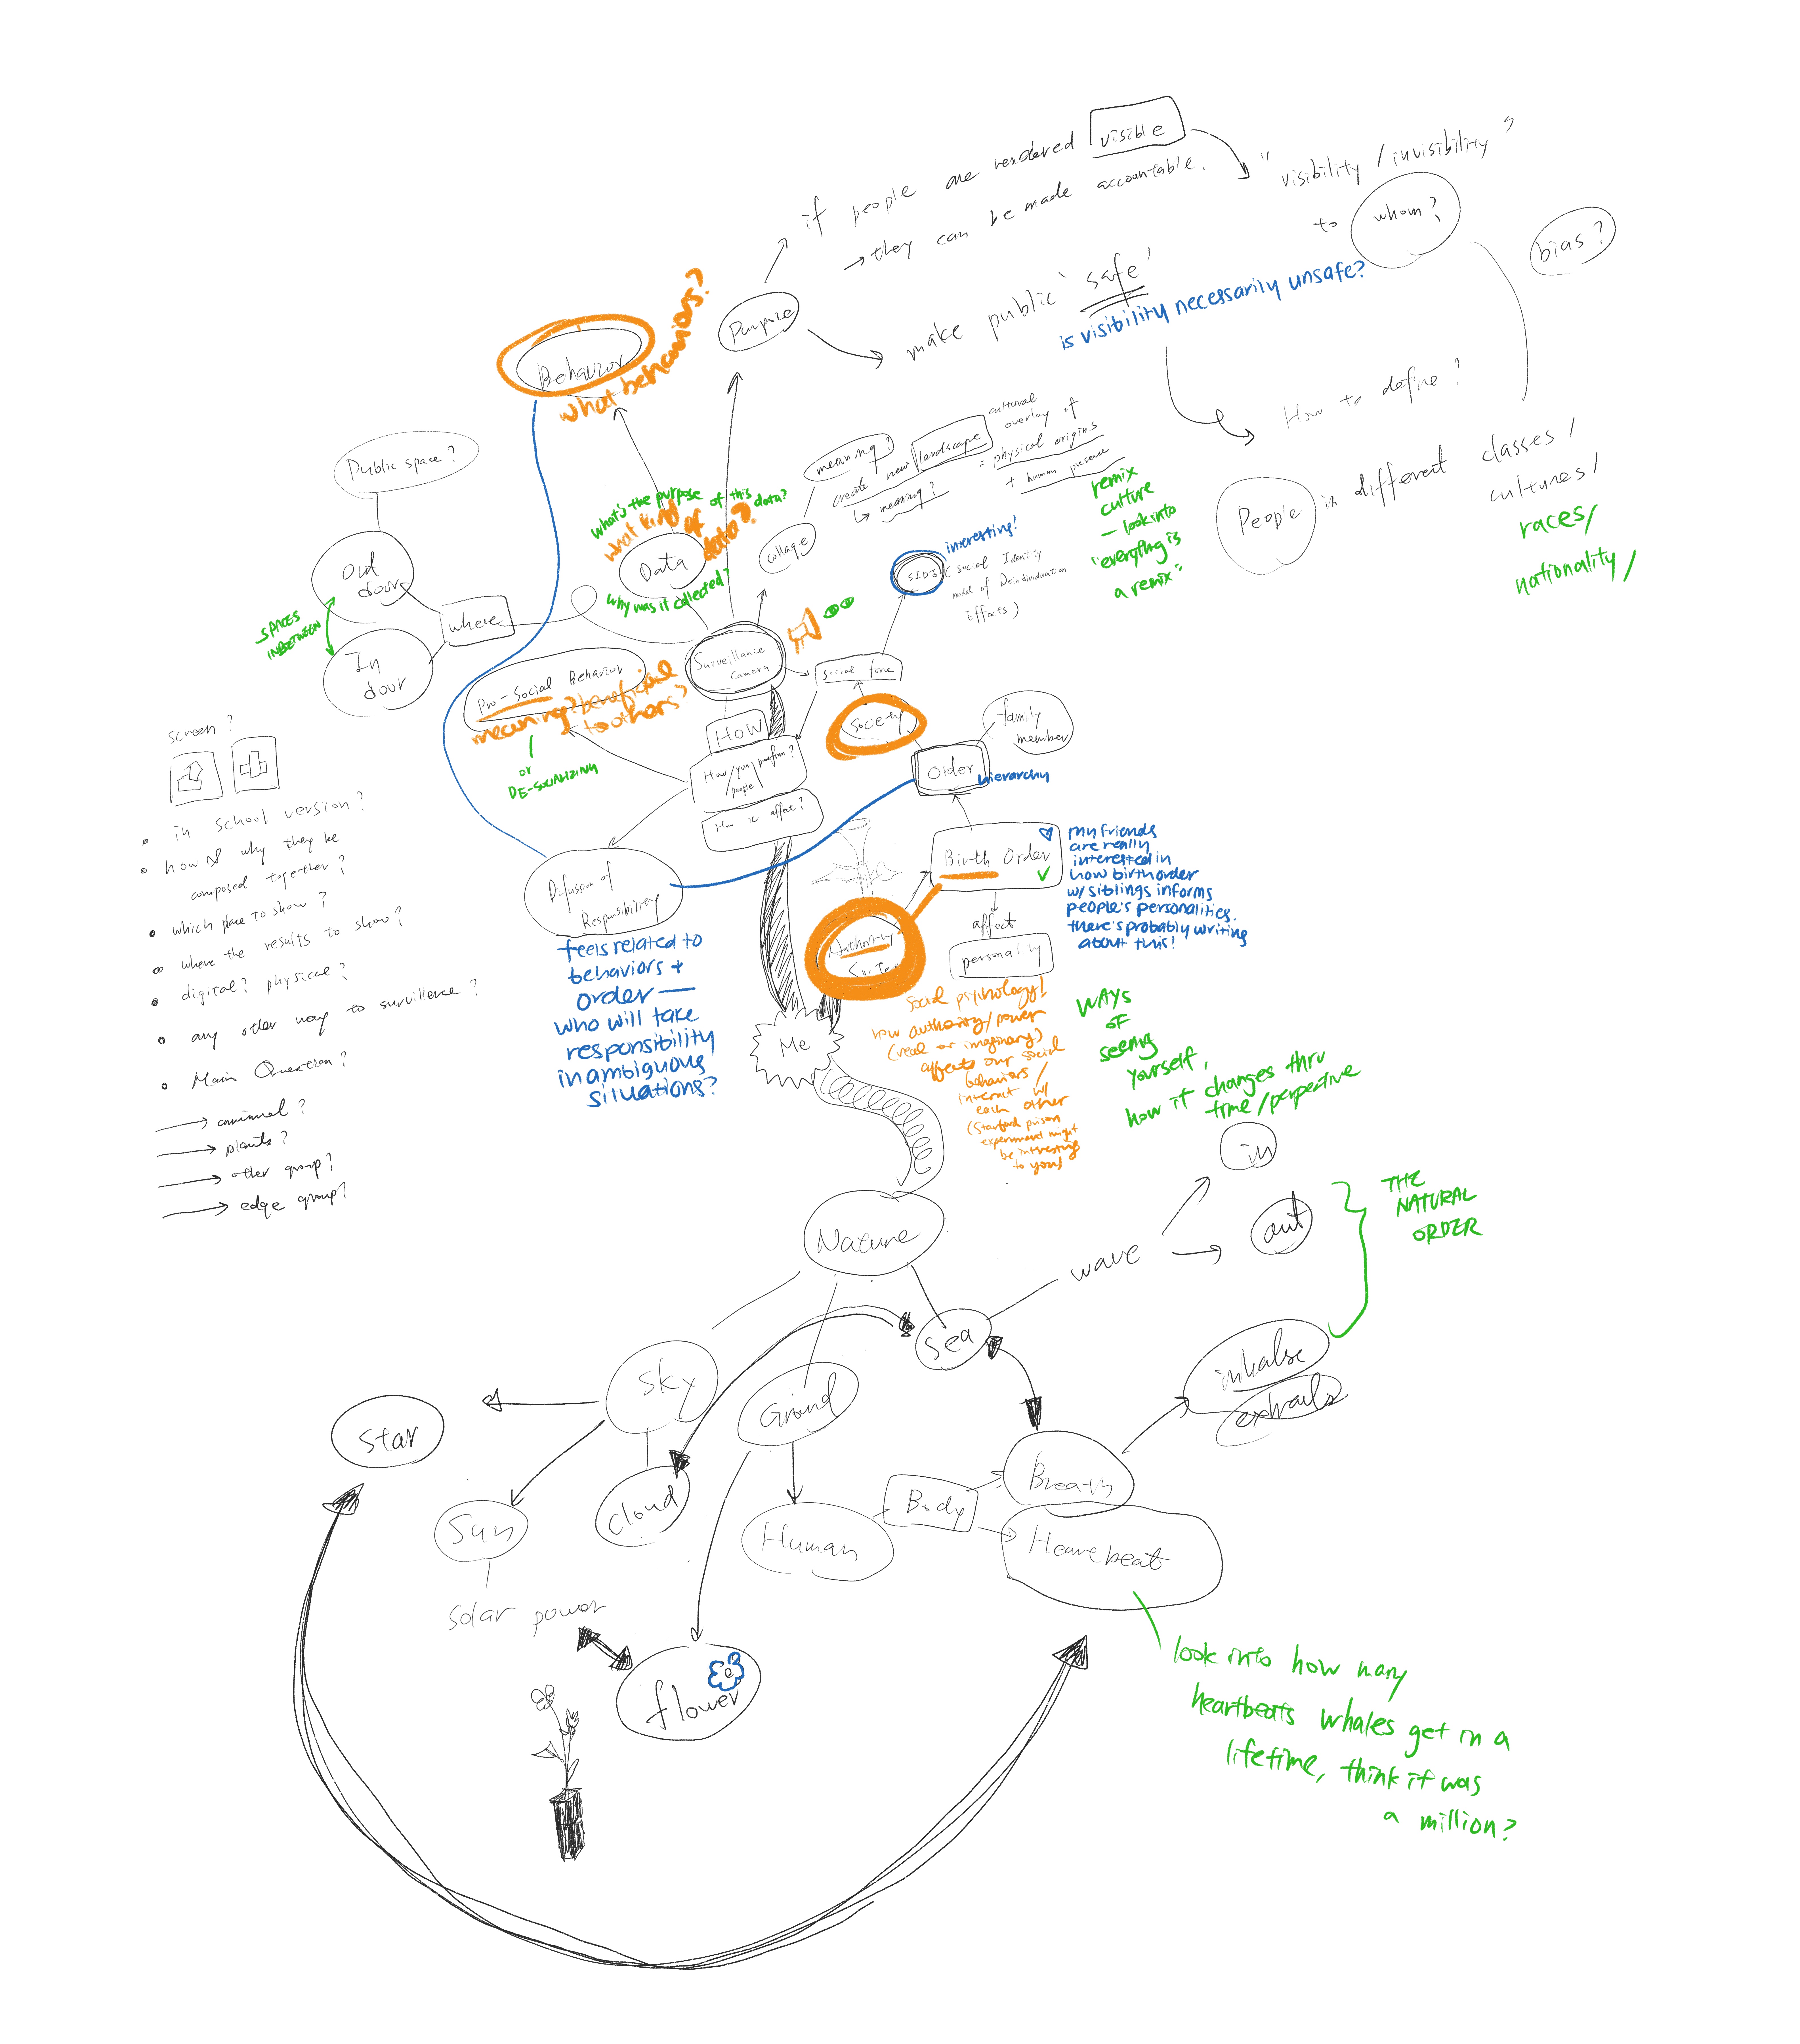 if people are rendered visible
→ they can be made accountable.
"visibility / invisibility"
to whom?
bias?
Purpose
make public 'safe'
is visibility necessarily unsafe?
How to define?
People in different classes /
cultures /
races/
nationality /
Behavior
what behaviors?
Public space?
Out
door
In
door
SPACES
INBETWEEN
where
what's the purpose of this data?
what kind of data?
Data
why was it collected?
collage
meaning?
create new landscape
↳ meaning?
cultural
overlay of
= physical origins
+ human presence
remix
culture
— look into
"everything is
a remix"
interesting!
SIDE (Social Identity
model of Deindividuation
Effects)
Surveillance
Camera
Social force
Society
family
member
Order
hierarchy
Pro-Social Behavior
meaning? beneficial
to others?
or
DE-SOCIALIZING
HOW
How you/people perform?
How it affect?
Difussion of
Responsibility
feels related to
behaviors +
order —
who will take
responsibility
in ambiguous
situations?
Birth Order
affect
personality
my friends
are really
interested in
how birth order
w/ siblings informs
people's personalities.
there's probably writing
about this!
Authority
social psychology!
how authority/power
(real or imaginary)
affects our social
behaviors /
interact w/
each other
(Stanford prison
experiment might
be interesting
to you)
WAYS
OF
seeing
yourself,
how it changes thru
time/perspective
screen?
• in school version?
• how & why they be
composed together?
• which place to show?
• where the results to show?
• digital? physical?
• any other way to survillence?
• Main Question?
→ animal?
→ plants?
→ other group?
→ edge group?
Me
Nature
wave
in
out
THE
NATURAL
ORDER
Sea
Sky
Ground
Star
Sun
Cloud
Human
Body
Breath
inhalse
Heavebeat
solar power
flower
look into how many
heartbeats whales get in a
lifetime, think it was
a million?